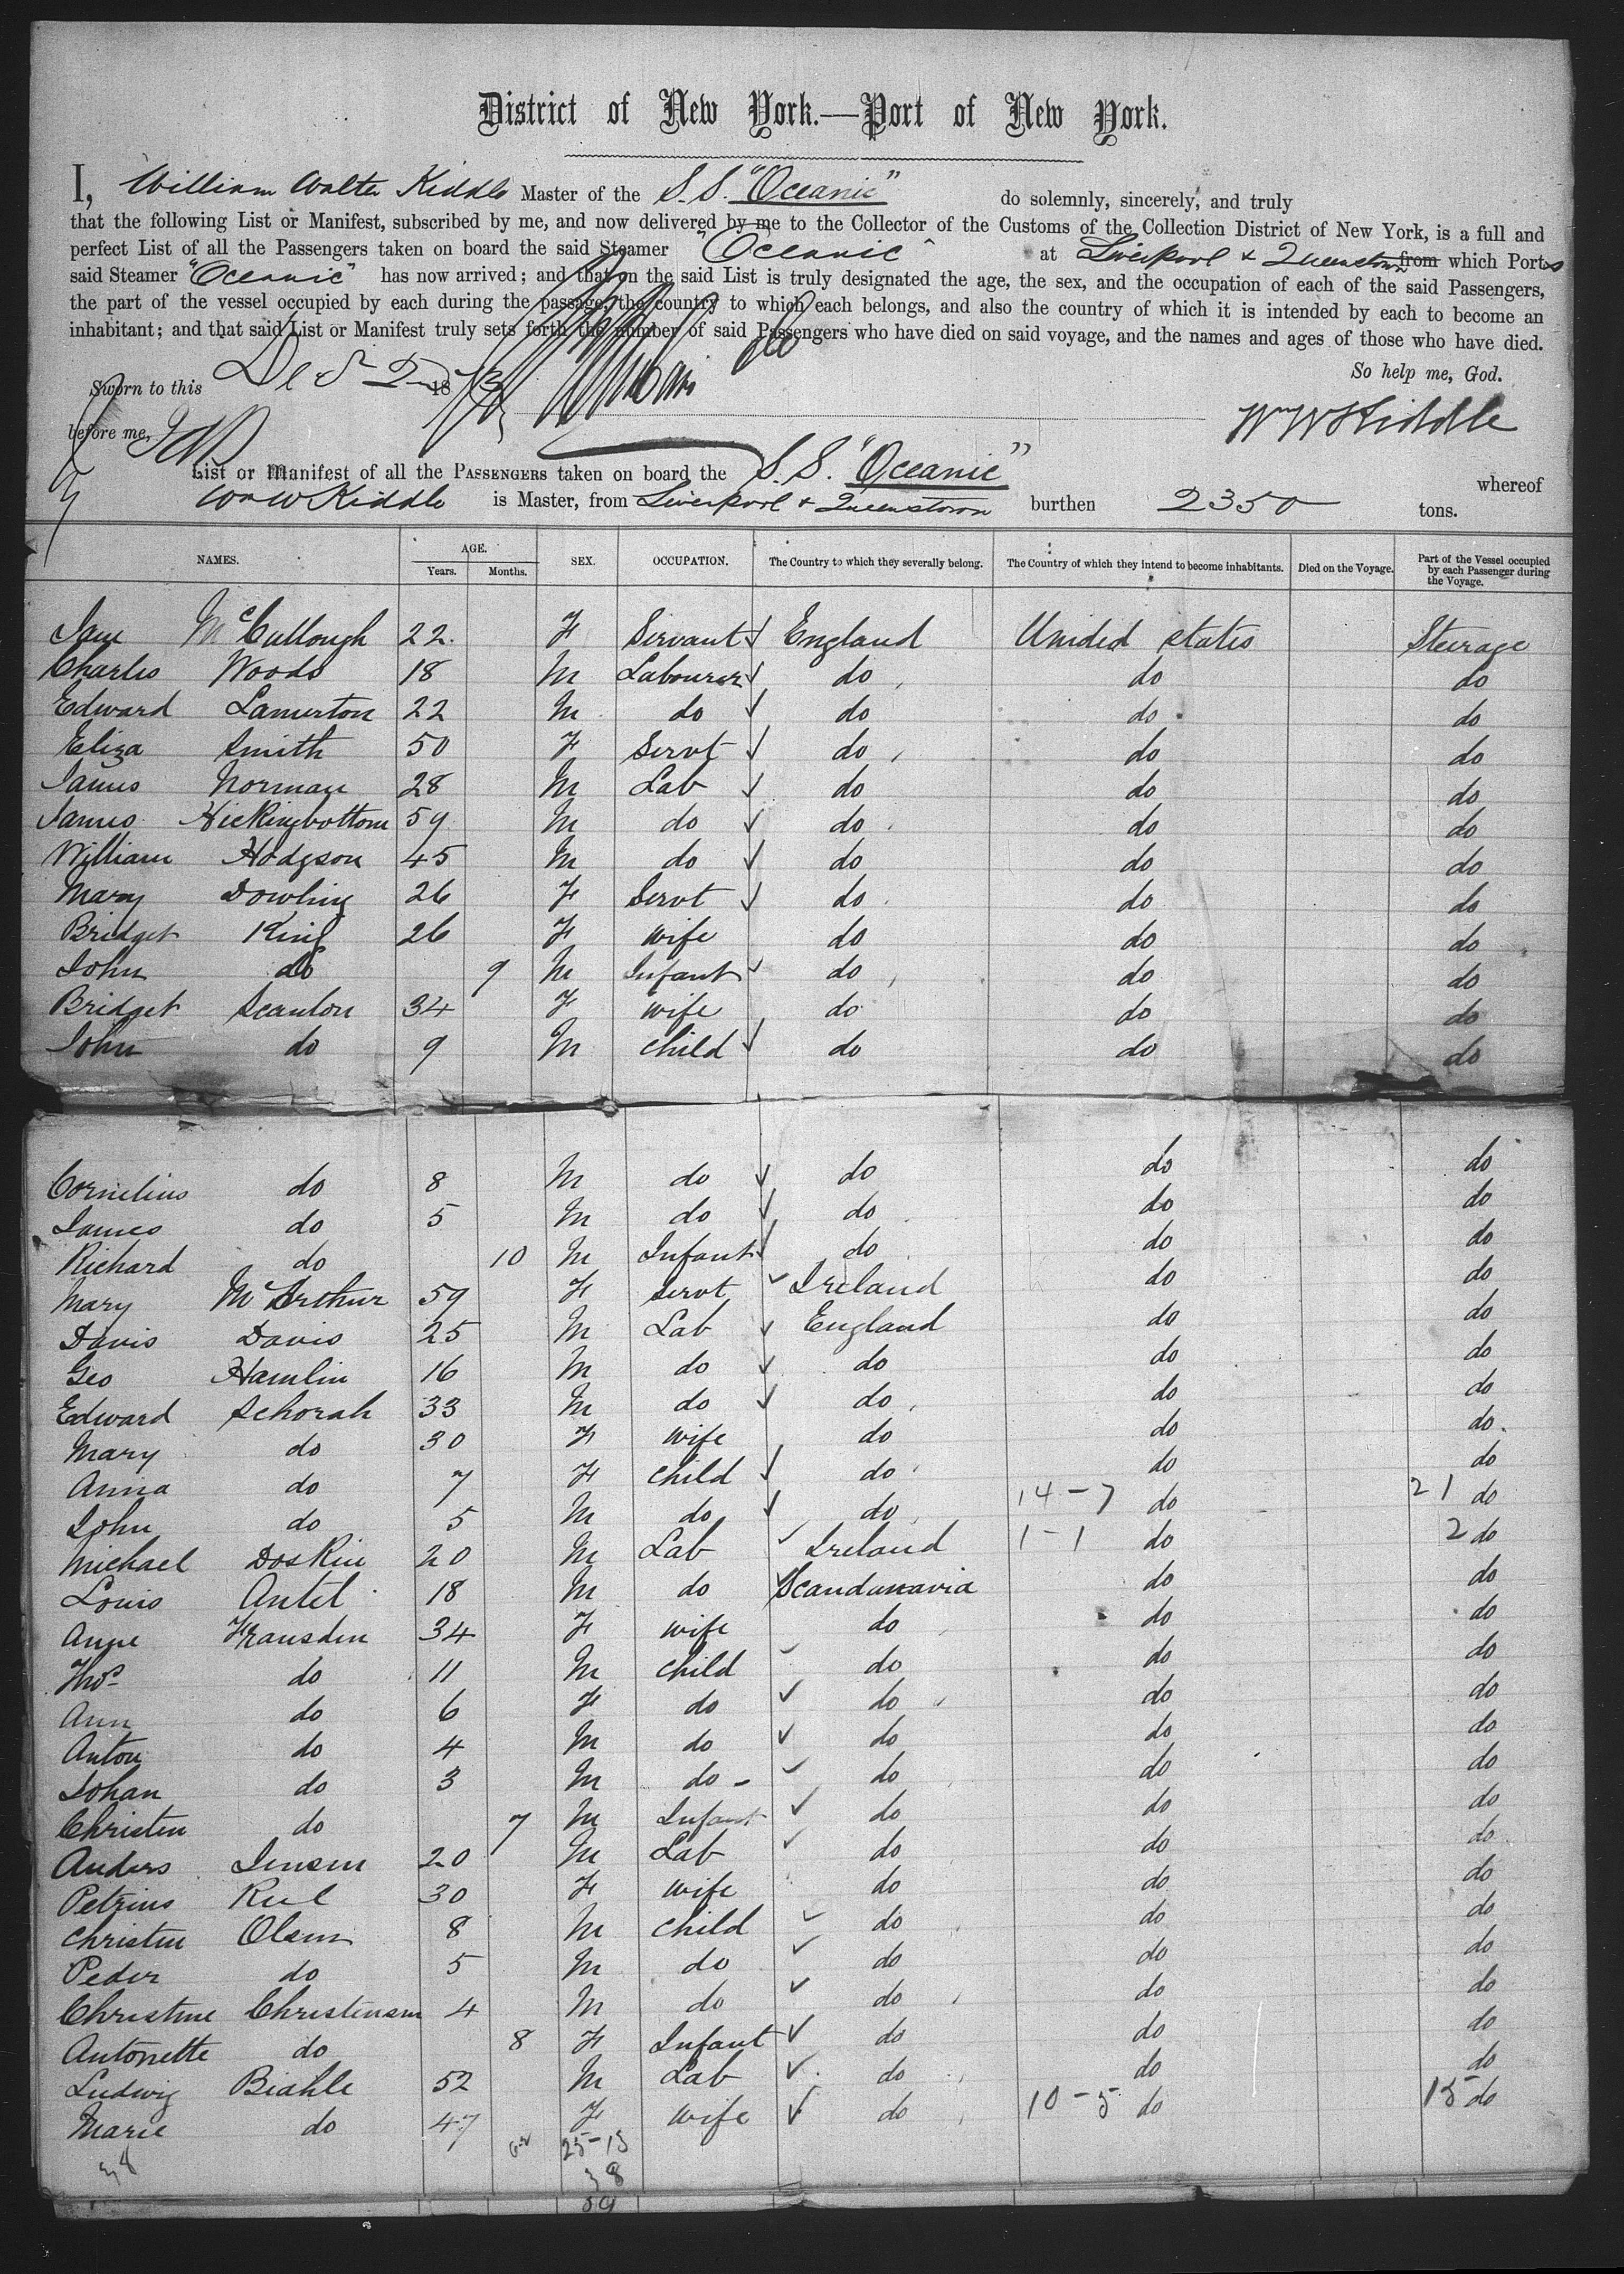 District of New York.—Port of New York.
I, William Walter Kiddle Master of the S.S. "Oceanic" do solemnly, sincerely, and truly
that the following List or Manifest, subscribed by me, and now delivered by me to the Collector of the Customs of the Collection District of New York, is a full and
perfect List of all the Passengers taken on board the said Steamer "Oceanic" at Liverpool & Queenstown from which Ports
said Steamer "Oceanic" has now arrived; and that on the said List is truly designated the age, the sex, and the occupation of each of the said Passengers,
the part of the vessel occupied by each during the passage, the country to which each belongs, and also the country of which it is intended by each to become an
inhabitant; and that said List or Manifest truly sets forth the number of said Passengers who have died on said voyage, and the names and ages of those who have died.
So help me, God.
Sworn to this 18
before me,
Wm W Kiddle
List or Manifest of all the PASSENGERS taken on board the S.S. "Oceanic" whereof
Wm W Kiddle is Master, from Liverpool & Queenstown burthen 2350 tons.
NAMES. AGE. Years. Months. SEX. OCCUPATION. The Country to which they severally belong. The Country of which they intend to become inhabitants. Died on the Voyage. Part of the Vessel occupied by each Passenger during the Voyage.
Jane McCullough 22 F Servant England Unided states Steerage
Charles Woods 18 M Labourer do do do
Edward Lamerton 22 M do do do do
Eliza Smith 50 F Servt do do do
James Norman 28 M Lab do do do
James Hickingbottom 59 M do do do do
William Hodgson 45 M do do do do
Mary Dowling 26 F Servt do do do
Bridget King 26 F wife do do do
John do 9 M Infant do do do
Bridget Scanlon 34 F wife do do do
John do 9 M child do do do
Cornelius do 8 M do do do do
James do 5 M do do do do
Richard do 10 M Infant do do do
Mary McArthur 59 F Servt Ireland do do
Davis Davis 25 M Lab England do do
Geo Hamlin 16 M do do do do
Edward Schorah 33 M do do do do
Mary do 30 F wife do do do
Anna do 7 F child do do do
John do 5 M do do 14-7 do 21 do
Michael Doskin 20 M Lab Ireland 1-1 do 2 do
Louis Antel 18 M do Scandanavia do do
Anne Fransden 34 F wife do do do
Thos do 11 M child do do do
Ann do 6 F do do do do
Anton do 4 M do do do do
Johan do 3 M do do do do
Christen do 7 M Infant do do do
Anders Jensen 20 M Lab do do do
Petrius Rul 30 F wife do do do
Christen Olsen 8 M child do do do
Peder do 5 M do do do do
Christine Christensen 4 M do do do do
Antonette do 8 F Infant do do do
Ludwig Biahle 52 M Lab do do do
Marie do 47 F wife do 10-5 do 15 do
38 25-13
38